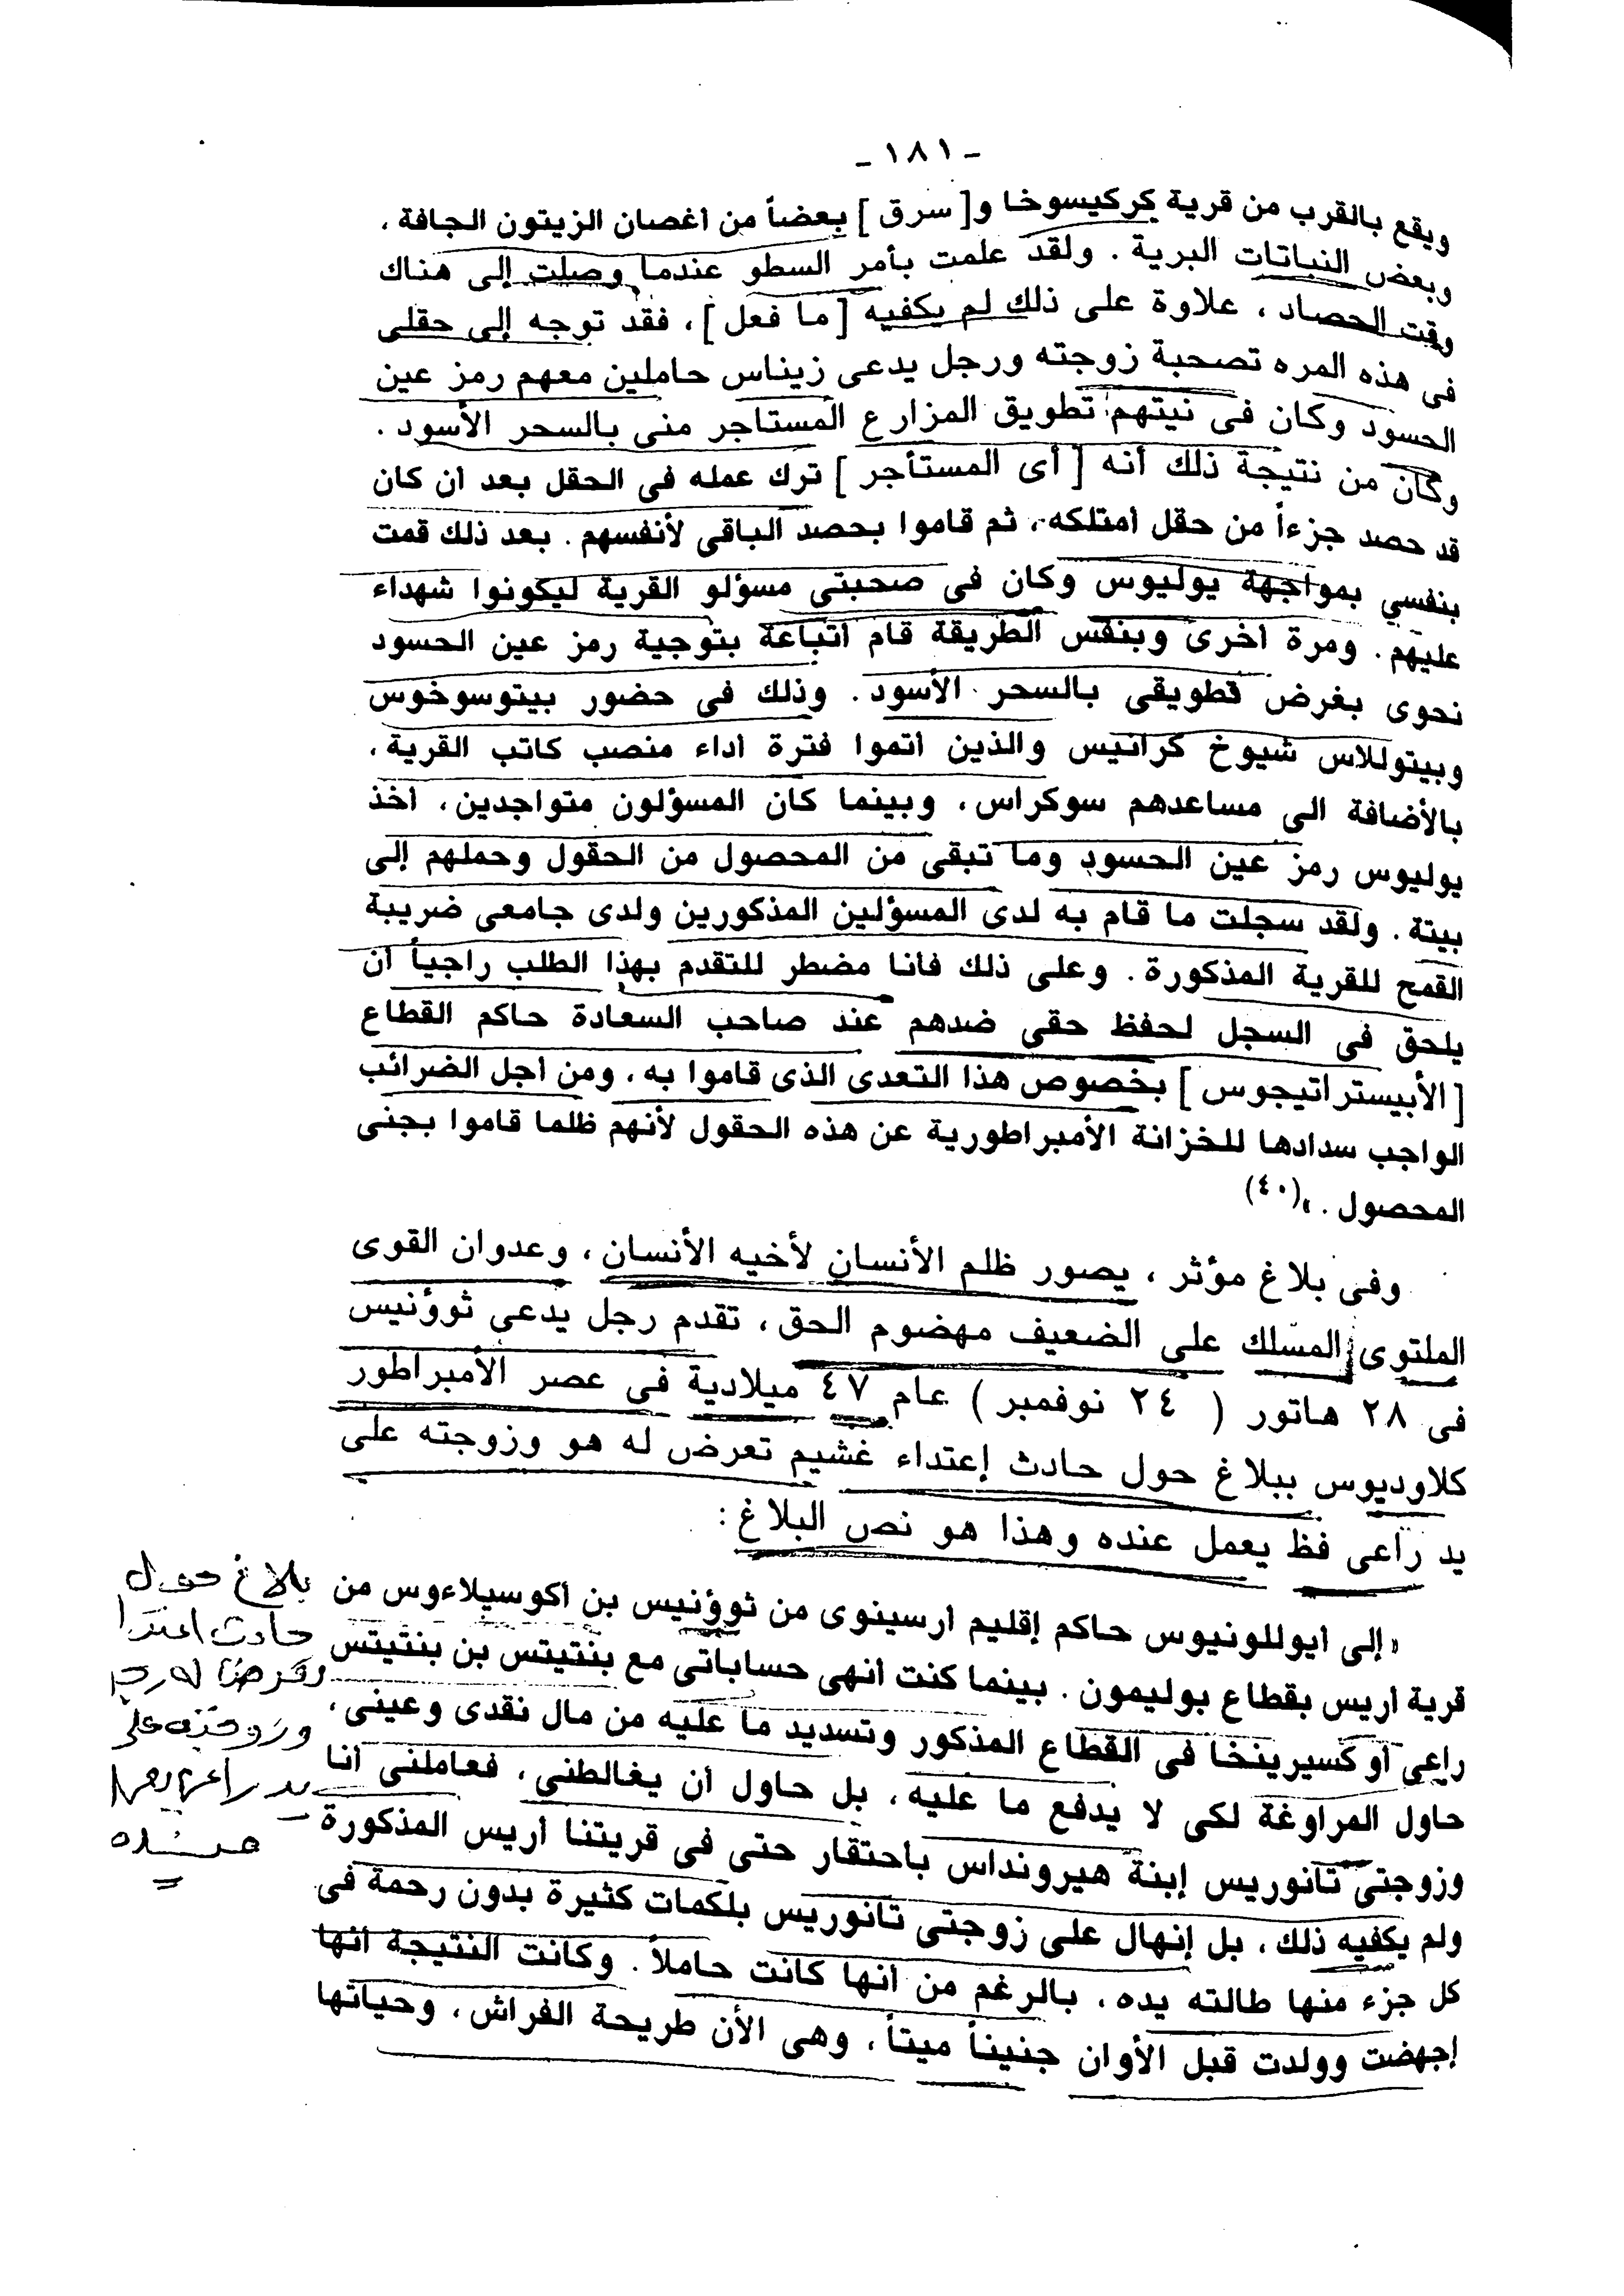 - ١٨١ -
ويقع بالقرب من قرية كركيسوخا و[ سرق ] بعضاً من أغصان الزيتون الجافة ،
وبعض النباتات البرية . ولقد علمت بأمر السطو عندما وصلت إلى هناك
وقت الحصاد ، علاوة على ذلك لم يكفيه [ ما فعل ] ، فقد توجه إلى حقلى
فى هذه المره تصحبة زوجته ورجل يدعى زيناس حاملين معهم رمز عين
الحسود وكان فى نيتهم تطويق المزارع المستاجر منى بالسحر الأسود .
وكان من نتيجة ذلك أنه [ أى المستأجر ] ترك عمله فى الحقل بعد أن كان
قد حصد جزءاً من حقل أمتلكه ، ثم قاموا بحصد الباقى لأنفسهم . بعد ذلك قمت
بنفسي بمواجهة يوليوس وكان فى صحبتى مسؤلو القرية ليكونوا شهداء
عليهم . ومرة أخرى وبنفس الطريقة قام أتباعة بتوجية رمز عين الحسود
نحوى بغرض قطويقى بالسحر الأسود . وذلك فى حضور بيتوسوخوس
وبيتوللاس شيوخ كرانيس والذين أتموا فترة أداء منصب كاتب القرية ،
بالأضافة الى مساعدهم سوكراس ، وبينما كان المسؤلون متواجدين ، أخذ
يوليوس رمز عين الحسود وما تبقى من المحصول من الحقول وحملهم إلى
بيتة . ولقد سجلت ما قام به لدى المسؤلين المذكورين ولدى جامعى ضريبة
القمح للقرية المذكورة . وعلى ذلك فأنا مضطر للتقدم بهذا الطلب راجياً أن
يلحق فى السجل لحفظ حقى ضدهم عند صاحب السعادة حاكم القطاع
[ الأبيستراتيجوس ] بخصوص هذا التعدى الذى قاموا به ، ومن أجل الضرائب
الواجب سدادها للخزانة الأمبراطورية عن هذه الحقول لأنهم ظلما قاموا بجنى
المحصول . »(٤٠)
وفى بلاغ مؤثر ، يصور ظلم الأنسان لأخيه الأنسان ، وعدوان القوى
الملتوى المسلك على الضعيف مهضوم الحق ، تقدم رجل يدعى ثوؤنيس
فى ٢٨ هاتور ( ٢٤ نوفمبر ) عام ٤٧ ميلادية فى عصر الأمبراطور
كلاوديوس ببلاغ حول حادث إعتداء غشيم تعرض له هو وزوجته على
يد راعى فظ يعمل عنده وهذا هو نص البلاغ :
« إلى أيوللونيوس حاكم إقليم أرسينوى من ثوؤنيس بن أكوسيلاءوس من
قرية أريس بقطاع بوليمون . بينما كنت أنهى حساباتى مع بنتيتس بن بنتيتس
راعى أو كسيرينخا فى القطاع المذكور وتسديد ما عليه من مال نقدى وعينى ،
حاول المراوغة لكى لا يدفع ما عليه ، بل حاول أن يغالطنى ، فعاملنى أنا
وزوجتى تانوريس إبنة هيرونداس بأحتقار حتى فى قريتنا أريس المذكورة
ولم يكفيه ذلك ، بل إنهال على زوجتى تانوريس بلكمات كثيرة بدون رحمة فى
كل جزء منها طالته يده ، بالرغم من أنها كانت حاملاً . وكانت النتيجة أنها
إجهضت وولدت قبل الأوان جنيناً ميتاً ، وهى الأن طريحة الفراش ، وحياتها
بلاغ حول
حادث اعتدا
تعرض له
وزوجته على
يد راعى يعمل
عنده